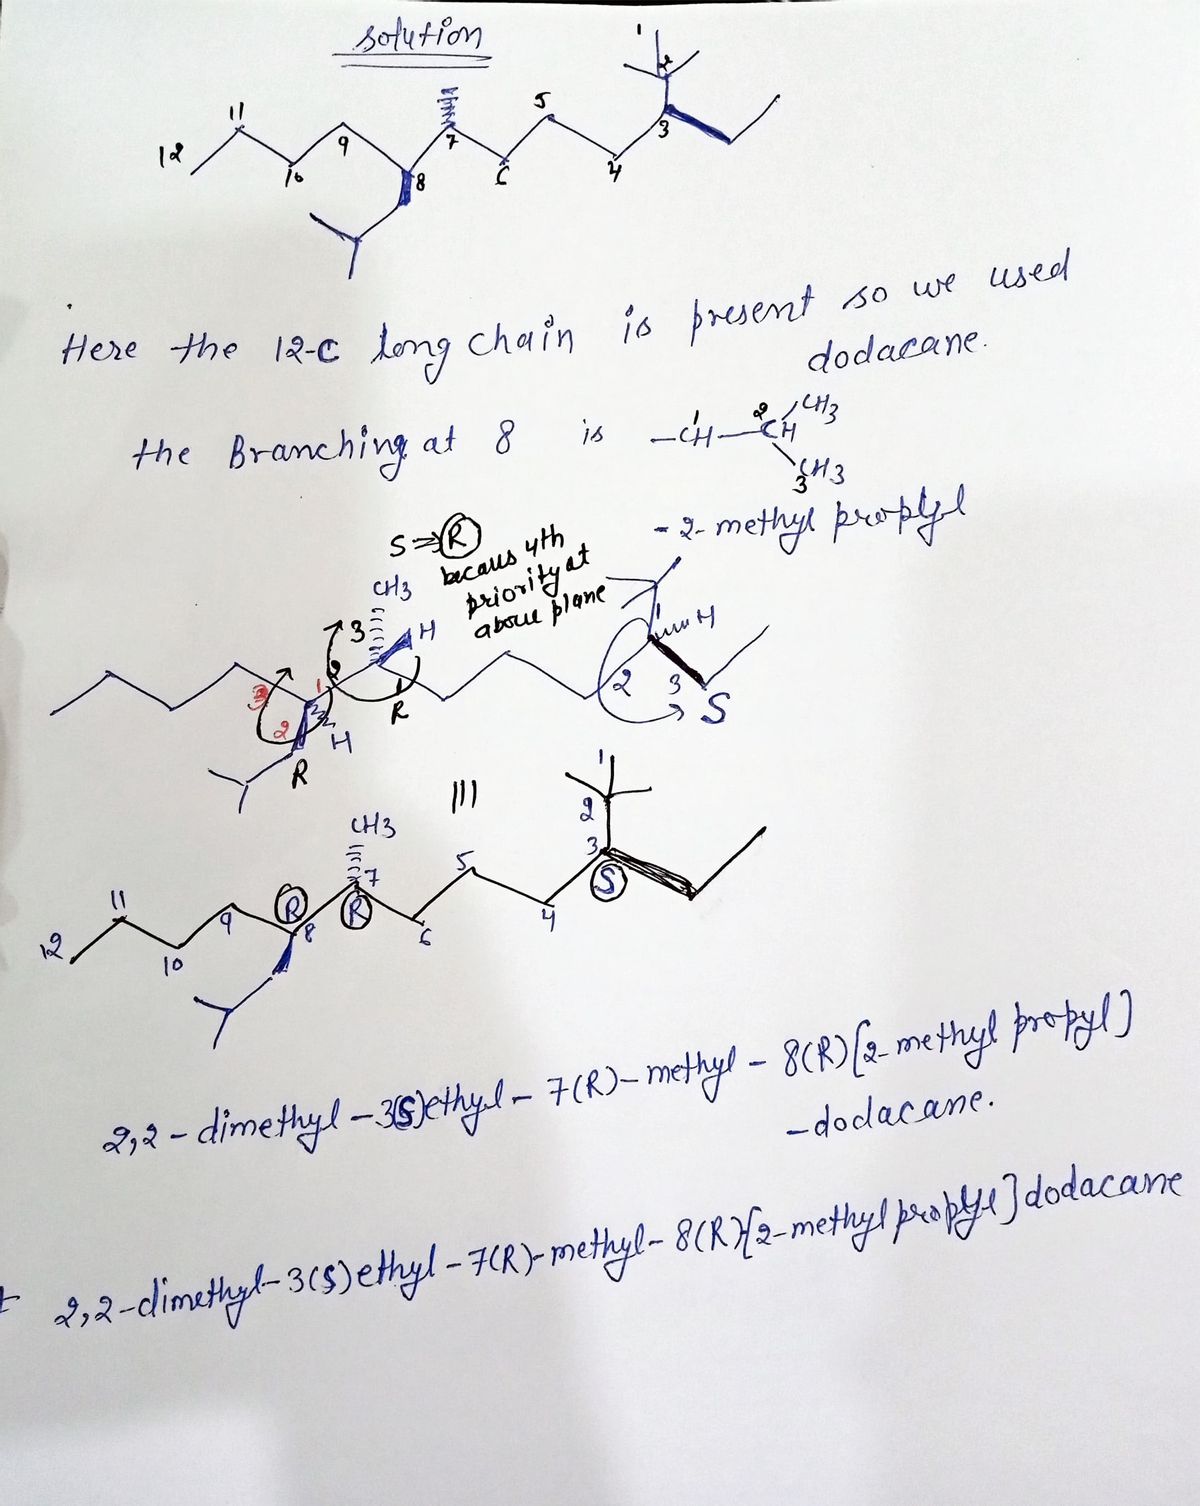 solution
1
2
3
4
5
6
7
8
9
10
11
12
Here the 12-C long chain is present so we used
dodacane.
the Branching at 8 is -CH-CH CH3
1 2
CH3
3
- 2- methyl propyl
S ⇒ R
becaus 4th
priority at
above plane
CH3
H
3 2 1 R
3 1 2 H
R
1 H
2 3 S
|||
CH3
1
2
3 S
4
5
6
7 R
8 R
9
10
11
12
2,2-dimethyl-3(S)ethyl-7(R)-methyl-8(R)[2-methyl propyl]
-dodacane.
2,2-dimethyl-3(S)ethyl-7(R)-methyl-8(R)[2-methyl propyl]dodacane